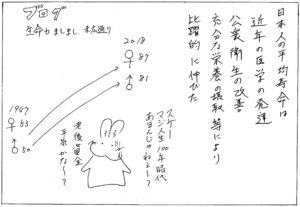 日本人の平均寿命は
近年の医学の発達
公衆衛生の改善
充分な栄養の摂取等により
比躍的に伸びた
ブログ
生命力ましまし 末広通り
2018
♀ 87
♂ 81
1947
♀ 53
♂ 50
スゲー
マジ人生100年時代
あるんじゃねぇ〜?
老後資金
平気かな〜?